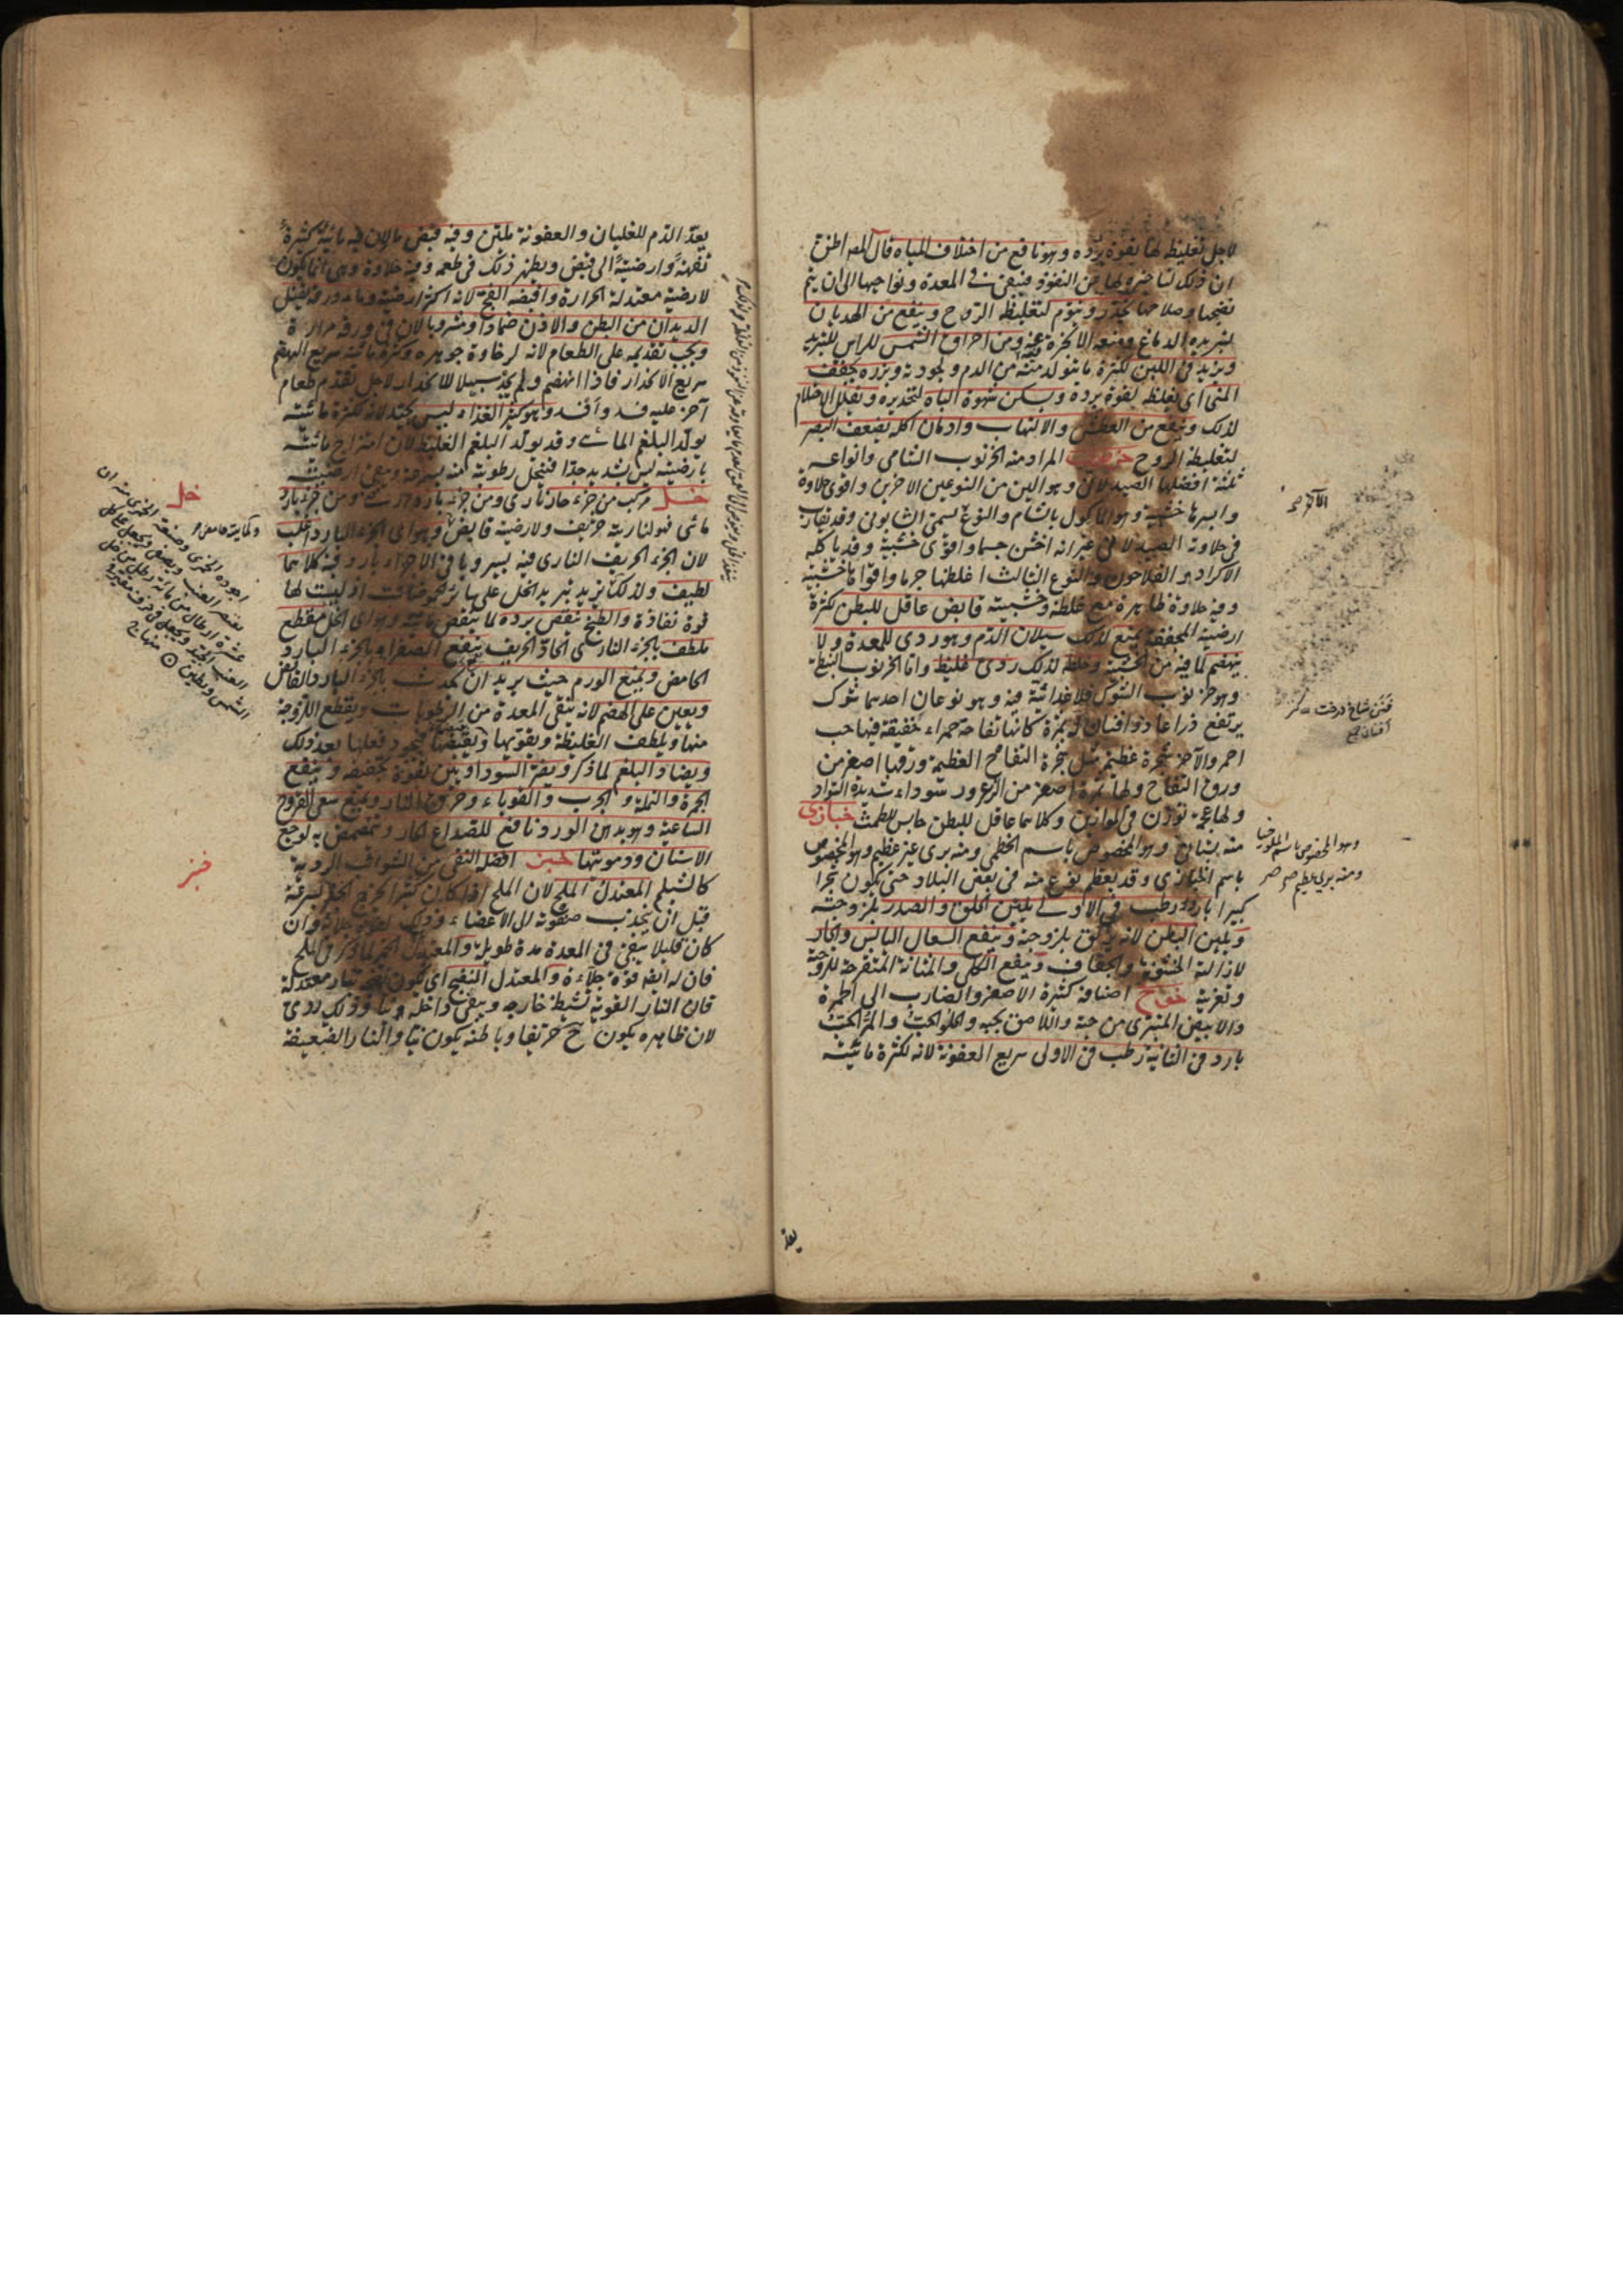 لاجل تغليظ لها بقوة برده وهو نافع من اختلاف المياه قال المص اظن
ان ذلك لتاخيره لها من النفوذ فتبقى في المعدة ونواحيها الى ان يتم
نضجها وصلاحها يخدر وينوم لتغليظه الروح وينفع من الهذيان
لتبريده الدماغ ومنعه الابخرة عنه ومن احراق الشمس للراس للتبريد
ويزيد في اللبن لكثرة ما يتولد منه من الدم ولجودته وبزره يجفف
المنى اى يغلظه بقوة برده ويسكن شهوة الباه لتخديره ويقلل الاحتلام
لذلك وينفع من العطش والالتهاب وادمان اكله يضعف البصر
لتغليظه الروح خرنوب المراد منه الخرنوب الشامى وانواعه
ثلثة افضلها الصيدلانى وهو الين من النوعين الاخرين واقوى حلاوة
وايسرها خشبية وهو الماكول بالشام والنوع يسمى الشابونى وقد يقارب
فى حلاوته الصيدلانى غير انه اخشن جسما واقوى خشبية وقد ياكله
الاكراد والفلاحون والنوع الثالث اغلظها جرما واقواها خشبية
وفيه حلاوة ظاهرة مع غلظه وخشبيته قابض عاقل للبطن لكثرة
ارضيته المجففة يمنع لذلك سيلان الدم وهو ردى للمعدة ولا
ينهضم لما فيه من الخشبية وخلطه لذلك ردى غليظ واما الخرنوب النبطى
وهو خرنوب الشوك فلا غذائية فيه وهو نوعان احدهما شوك
يرتفع ذراعا ذو افنان له ثمرة كانها تفاحة حمراء خفيفة فيها حب
احمر والآخر شجرة عظيم مثل شجرة التفاح العظيمة ورقها اصغر من
ورق التفاح ولها ثمرة اصغر من الزعرور سوداء شديدة السواد
ولها عجم توزن فى الموازين وكلاهما عاقل للبطن حابس للطمث خبازى
منه بستانى وهو المخصوص باسم الخطمى ومنه برى غير عظيم وهو المخصوص
باسم الخبازى وقد يعظم نوع منه فى بعض البلاد حتى يكون شجرا
كبيرا بارد رطب فى الاولى يلين الحلق والصدر بلزوجته
ويلين البطن لانه يزلق بلزوجته وينفع السعال اليابس والحار
لازالته الخشونة والجفاف وينفع الكلى والمثانة المتقرحة للزوجته
وتغريته خوخ اصنافه كثيرة الاصفر والضارب الى الحمرة
والابيض المتبرى من حبه واللاصق بحبه والحلو الحب والمر الحب
بارد فى الثانية رطب فى الاولى سريع العفونة لانه لكثرة مائيته
يعد
الآخر
فنن شاخ درخت
افنان ج
وهو المخصوص باسم الملوخيا
ومنه برى
يعد الدم للغليان والعفونة ملين وفيه قبض ما لان فيه مائية كثيرة
تفهة وارضية الى قبض ويظهر ذلك فى طعمه وفيه حلاوة وهى انما يكون
لارضية معتدلة الحرارة واقبضه الفج لانه اكثر ارضية وماء ورقه يقتل
الديدان من البطن والاذن ضمادا ومشروبا لان فى ورقه مرارة
ويجب تقديمه على الطعام لانه لرخاوة جوهره وكثرة مائيته سريع الهضم
سريع الانحدار فاذا انهضم ولم يجد سبيلا للانحدار لاجل تقدم طعام
آخر عليه فسد وافسد وهو كثير الغذاء ليس بجيد لانه لكثرة مائيته
يولد البلغم المائى وقد يولد البلغم الغليظ لان امتزاج مائيته
بارضيته ليس بشديد جدا فيتحلل رطوبته عنه بسرعة ويبقى ارضيته
خل مركب من جزء حار نارى ومن جزء بارد ارضى ومن جزء بارد
مائى فهو لناريته حريف ولارضيته قابض وهو اى الجزء البارد اغلب
لان الجزء الحريف النارى فيه يسير وباقى الاجزاء بارد وفيه كلاهما
لطيف ولذلك يزيد تبريد الخل على سائر الحموضات اذ ليست لها
قوة نفاذة والطبخ ينقص برده لما ينقص مائيته وهو اى الخل مقطع
ملطف بالجزء النارى الحاد الحريف ينفع الصفراء بالجزء البارد
الحامض ويمنع الورم حيث يريد ان يحدث بالجزء البارد القابض
ويعين على الهضم لانه ينقى المعدة من الرطوبات ويقطع اللزوجة
منها ويلطف الغليظة ويقويها ويقبضها فيجود فعلها بعد ذلك
ويضاد البلغم لما ذكر ويضر السوداويين لقوة تجفيفه وينفع
الجمرة والنملة والجرب والقوباء وحرق النار ويمنع سعى القروح
الساعية وهو بدهن الورد نافع للصداع الحار ويتمضمض به لوجع
الاسنان ودمويتها خبز افضله النقى من الشوائب الردية
كالشيلم المعتدل الملح لان الملح اذا كان كثيرا اخرج الخبز بسرعة
قبل ان يجذب صفوته الى الاعضاء وذلك لقوة جلائه وان
كان قليلا يبقى فى المعدة مدة طويلة والمعتدل الخمر لما ذكر فى الملح
فان له ايضا قوة جلاءة والمعتدل النضج اى يكون نضجه بنار معتدلة
فان النار القوية تشيط خارجه ويبقى داخله نيا وذلك ردى
لان ظاهره يكون ح محترقا وباطنه يكون نيا والنار الضعيفة
خل
اجوده الخمرى وصنعة الخمرى منه ان
يعتصر العنب ويصفى ويجعل على كل
عشرة ارطال من مائه رطل من خل
العنب الجيد ويجعل فى ظرف مقيرة
الشمس ويطين منهاج
خبز